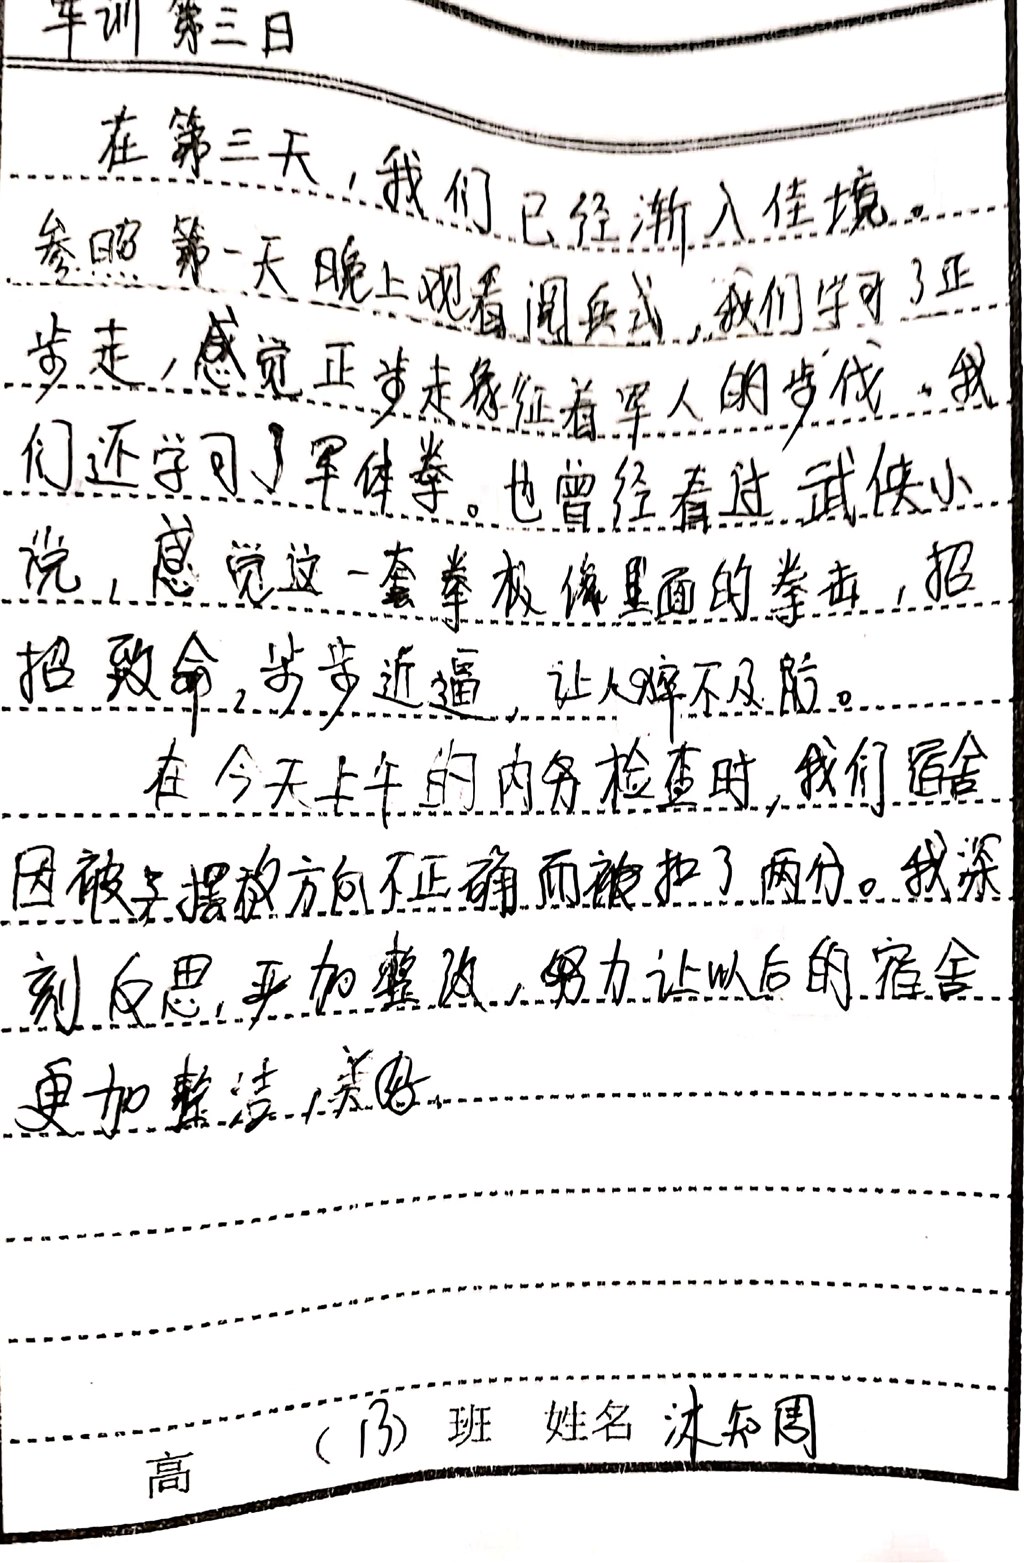 军训第三日
在第三天，我们已经渐入佳境。
参照第一天晚上观看阅兵式，我们学习了正
步走，感觉正步走象征着军人的步伐。我
们还学习了军体拳。也曾经看过武侠小
说，感觉这一套拳极像里面的拳击，招
招致命，步步近逼，让人猝不及防。
在今天上午的内务检查时，我们宿舍
因被子摆放方向不正确而被扣了两分。我深
刻反思，严加整改，努力让以后的宿舍
更加整洁，美好.
高 （13）班 姓名 沐知周